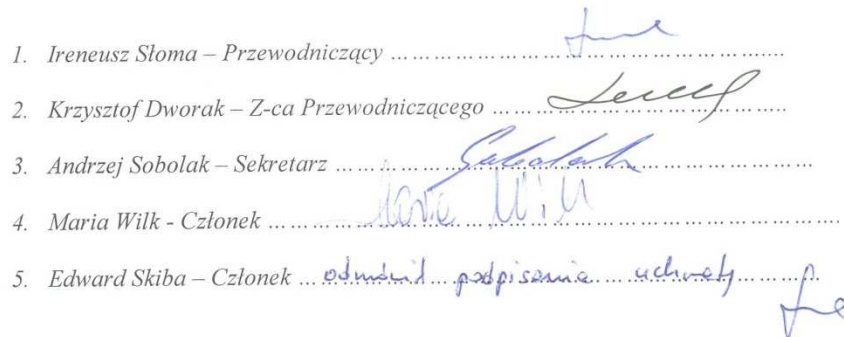 1. Ireneusz Słoma – Przewodniczący ……………………………………………
2. Krzysztof Dworak – Z-ca Przewodniczącego ……………………………
3. Andrzej Sobolak – Sekretarz ……………………………………………………
4. Maria Wilk - Członek ………………………………………………………………
Maria Wilk
5. Edward Skiba – Członek … odmówił podpisania uchwały ……